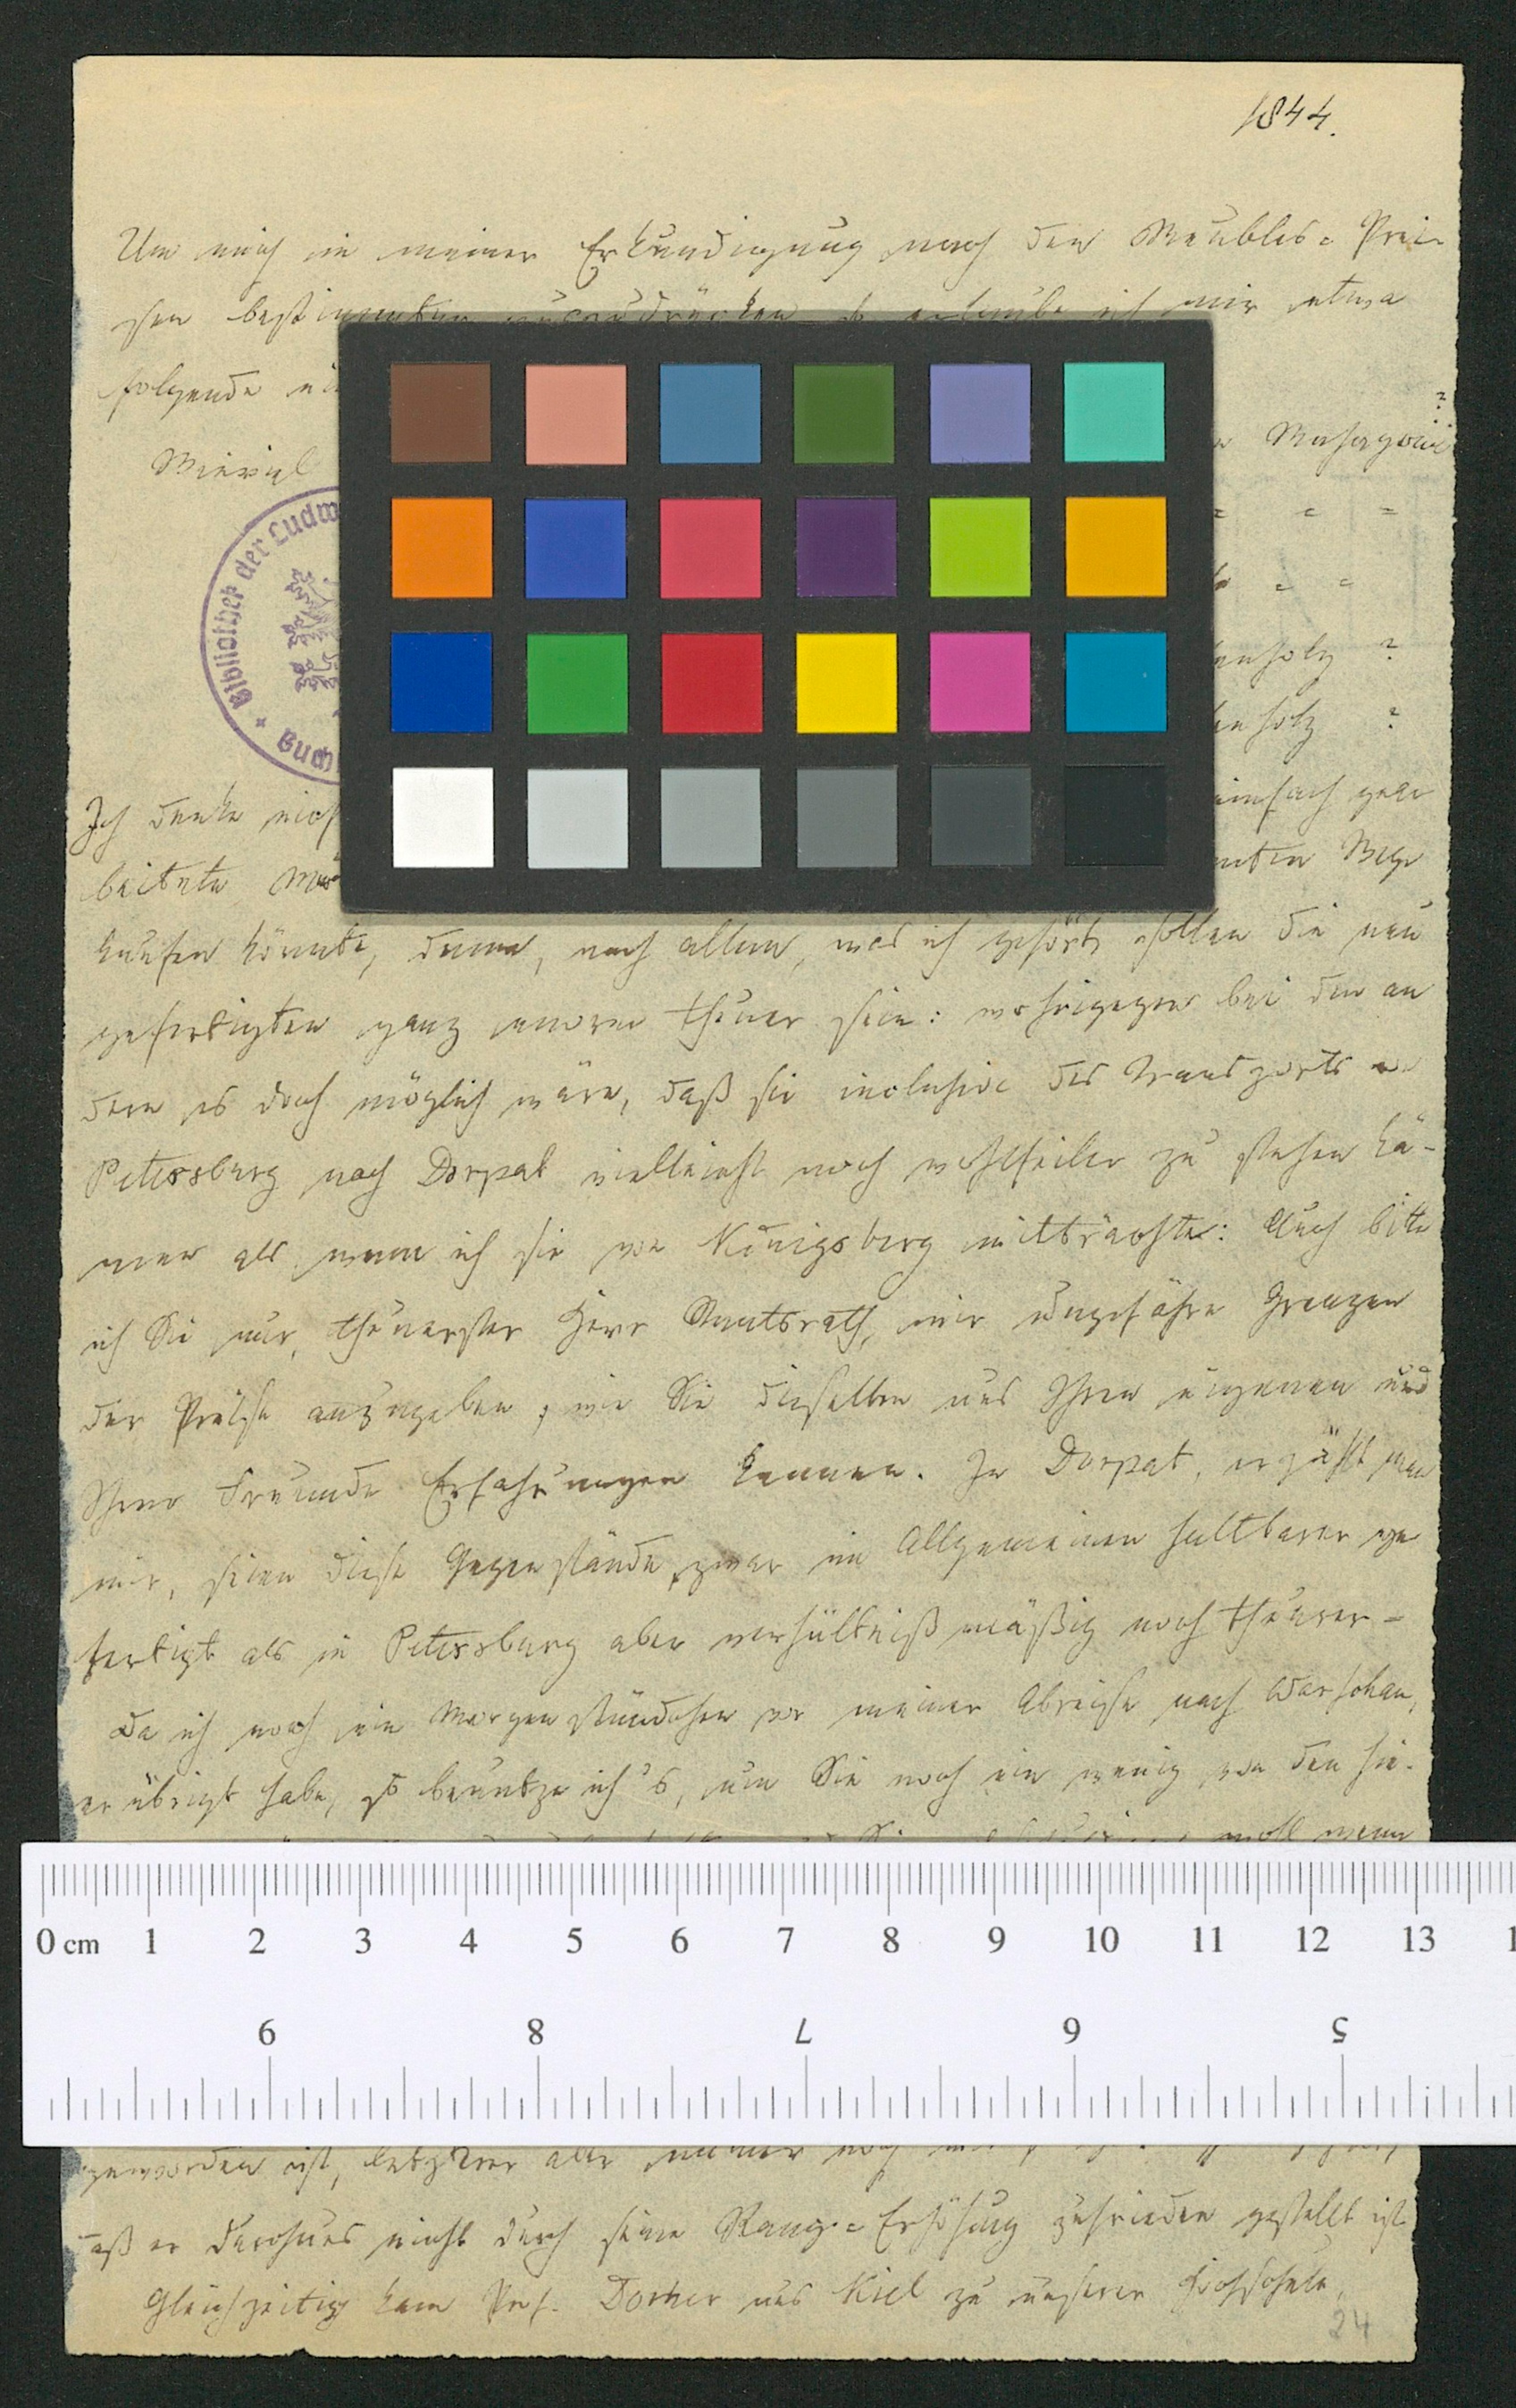 1844.
Um mich in meiner Erkundigung nach den Meubles-Prei-
sen bestimmter auszudrücken so erlaube ich mir etwa
folgende
Wieviel Mahagoni?
Bibliothek der Ludw
Buch
enholz ?
enholz ?
Ich denke einfach gear
beitete
kaufen könnte, denn, nach allem, was ich gehört sollen die neu
gefertigten ganz enorm theuer sein: wohingegen bei den an
dern es doch möglich wäre, daß sie inclusive des Transports
Petersburg nach Dorpat vielleicht noch wohlfeiler zu stehen kä-
men als wenn ich sie von Königsberg mitbrächte: Auch bitte
ich Sie nur, theuerster Herr Staatsrath, mir ungefähre Grenzen
der Preise anzugeben, wie Sie dieselben aus Ihren eigenen und
Ihrer Freunde Erfahrungen kennen. In Dorpat, erzählt man
mir, seien diese Gegenstände zwar im Allgemeinen haltbarer ge
fertigt als in Petersburg aber verhältnißmäßig noch theurer-
Da ich noch ein Morgenstündchen vor meiner Abreise nach Warschau,
erübrigt habe, so benutze ich's, um Sie noch ein wenig von den hie-
wenn
0 cm 1 2 3 4 5 6 7 8 9 10 11 12 13 1
9 8 7 6 5
geworden ist, letzterer aber immer noch
daß er durchaus nicht durch seine Rang-Erhöhung zufrieden gestellt ist
Gleichzeitig kam Prof. Dorner aus Kiel zu unserer Hochschule,
24